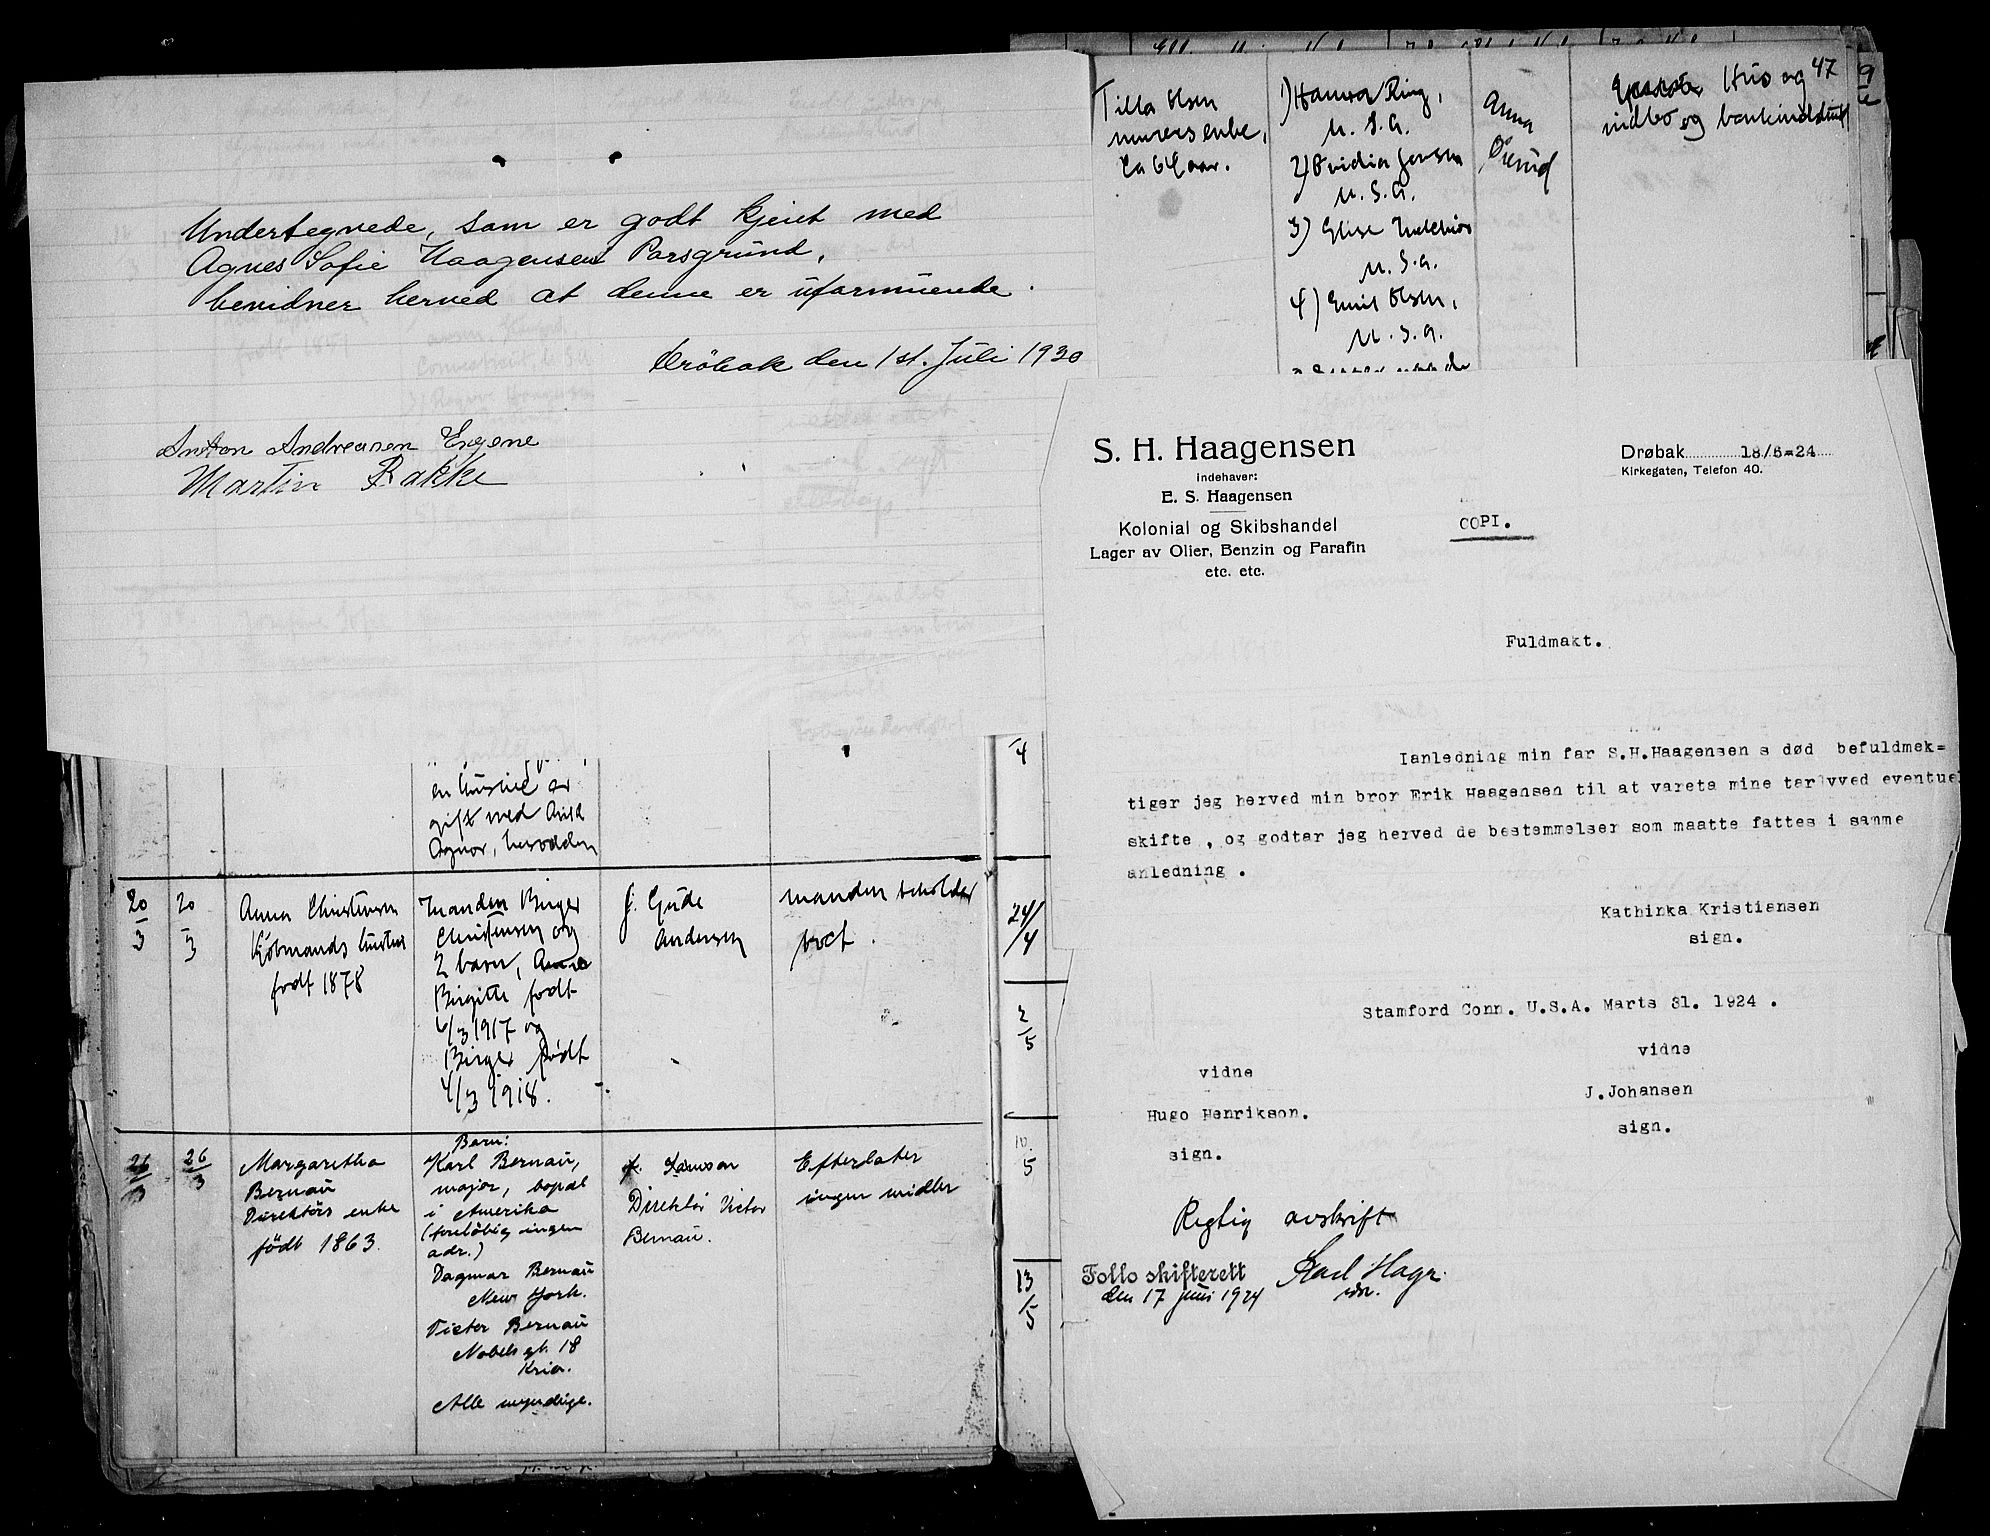 Undertegnede, som er godt kjent med
Agnes Sofie Haagensen Porsgrund,
bevidner herved at denne er uformuende.
Drøbak den 1st. Juli 1930
Anton Andreasen Engene
Martin Bakke
en hustru er
gift med
Agnor,
20/3
20/3
Anna Christensen
Kjøbmands hustru
født 1878
Manden Birger
Christensen og
2 barn, Anne
Birgitte født
6/3 1917 og
Birger født
4/3 1918.
J. Gude
Andersen
Manden beholder
boet.
26/3
26/3
Margaretha
Bernau
Direktørs enke
født 1863.
Barn:
Karl Bernau,
major, bopæl
i Amerika
(foreløbig ingen
adr.)
Dagmar Bernau
New York.
Victor Bernau
Nobels gt. 18
Kria.
Alle myndige.
Direktør Victor
Bernau.
Efterlater
ingen midler
4
24/4
2/5
10/5
13/5
47
Tilla Olsen
murers enke,
ca 64 aar.
1) Hanna Ring,
U.S.A.
2) Ovidia Jensen
U.S.A.
3) Elise
U.S.A.
4) Emil Olsen,
U.S.A.
Anna
Hus og
indbo og bankindskud
S. H. Haagensen
Indehaver:
E. S. Haagensen
Kolonial og Skibshandel
Lager av Olier, Benzin og Parafin
etc. etc.
Drøbak 18/6-24
Kirkegaten, Telefon 40.
COPI.
Fuldmakt.
Ianledning min far S.H.Haagensen s død befuldmek=
tiger jeg herved min bror Erik Haagensen til at vareta mine tar vved eventuel
skifte , og godtar jeg herved de bestemmelser som maatte fattes i samme
anledning .
Kathinka Kristiansen
sign.
Stamford Conn. U.S.A. Marts 31. 1924 .
vidne
vidne
J.Johansen
Hugo Henrikson.
sign.
sign.
Rigtig avskrift
Follo skifterett
den 17 juni 1924